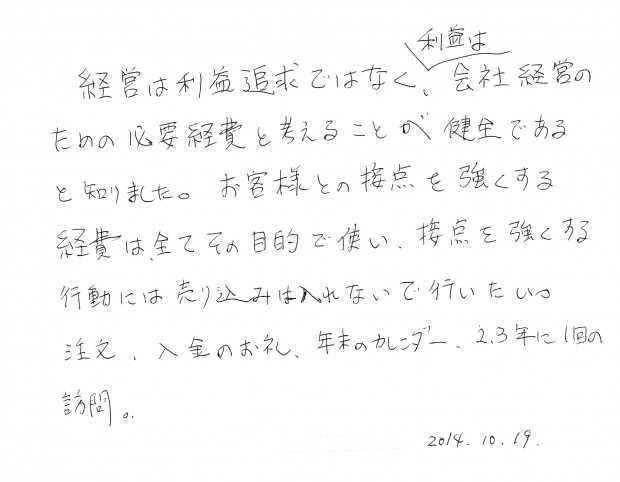 利益は
経営は利益追求ではなく、会社経営の
ための必要経費と考えることが健全である
と知りました。お客様との接点を強くする
経費は、全てその目的で使い、接点を強くする
行動には売り込みは入れないで行いたい。
注文、入金のお礼、年末のカレンダー、2.3年に1回の
訪問。
2014.10.19.